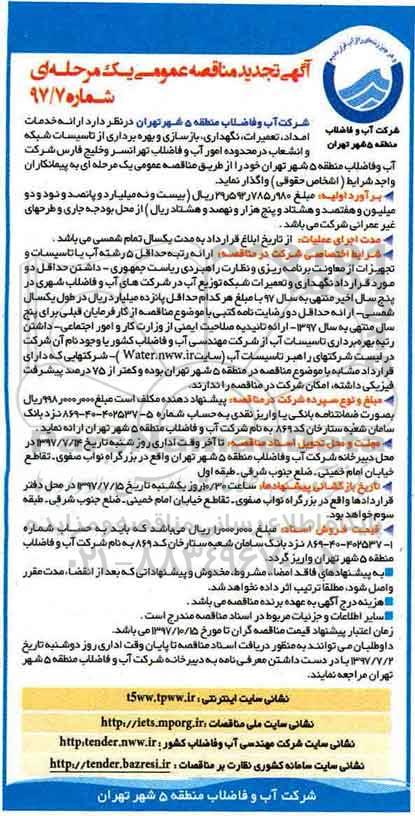 آگهی تجدید مناقصه عمومی یک مرحله‌ای
شماره ۹۷/۷
شرکت آب و فاضلاب
منطقه ۵ شهر تهران
شرکت آب و فاضلاب منطقه ۵ شهر تهران در نظر دارد ارائه خدمات
امداد، تعمیرات، نگهداری، بازسازی و بهره برداری از تاسیسات شبکه
و انشعاب در محدوده امور آب و فاضلاب تهرانسر و خلیج فارس شرکت
آب و فاضلاب منطقه ۵ شهر تهران خود را از طریق مناقصه عمومی یک مرحله ای به پیمانکاران
واجد شرایط ( اشخاص حقوقی ) واگذار نماید.
برآورد اولیه: مبلغ ۲۹٫۵۹۲٫۷۸۵٫۹۸۰ ریال ( بیست و نه میلیارد و پانصد و نود و دو
میلیون و هفتصد و هشتاد و پنج هزار و نهصد و هشتاد ریال ) از محل بودجه جاری و طرحهای
غیر عمرانی شرکت می باشد .
مدت اجرای عملیات: از تاریخ ابلاغ قرارداد به مدت یکسال تمام شمسی می باشد .
شرایط اختصاصی شرکت در مناقصه: ارائه رتبه حداقل ۵ رشته آب یا تاسیسات و
تجهیزات از معاونت برنامه ریزی و نظارت راهبردی ریاست جمهوری - داشتن حداقل دو
مورد قرارداد نگهداری و تعمیرات شبکه توزیع آب در شرکت های آب و فاضلاب شهری در
پنج سال اخیر منتهی به سال ۹۷ با مبلغ هر کدام حداقل پانزده میلیارد ریال در طول یکسال
شمسی- ارائه حداقل دو رضایت نامه کتبی با موضوع مناقصه از کارفرمایان قبلی برای پنج
سال منتهی به سال ۱۳۹۷- ارائه تائیدیه صلاحیت ایمنی از وزارت کار و امور اجتماعی- داشتن
رتبه بهره برداری تاسیسات آب از شرکت مهندسی آب و فاضلاب کشور یا وجود نام آن شرکت
در لیست شرکتهای راهبر تاسیسات آب (سایت Water.nww.ir )- شرکتهایی که دارای
قرارداد مشابه با موضوع مناقصه در منطقه ۵ شهر تهران بوده و کمتر از ۷۵ درصد پیشرفت
فیزیکی داشته، امکان شرکت در مناقصه را ندارند.
مبلغ و نوع سپرده شرکت در مناقصه: پیشنهاد دهنده مکلف است مبلغ ۹۹۸٫۰۰۰٫۰۰۰ ریال
بصورت ضمانتنامه بانکی یا واریز نقدی به حساب شماره ۵-۴۰۲۵۳۷-۴۰-۸۶۹ نزد بانک
سامان شعبه ستارخان کد ۸۶۹ به نام شرکت آب و فاضلاب منطقه ۵ شهر تهران ارائه نماید.
مهلت و محل تحویل اسناد مناقصه: تا آخر وقت اداری روز شنبه تاریخ ۱۳۹۷/۷/۱۴ در
محل دبیرخانه شرکت آب و فاضلاب منطقه ۵ شهر تهران واقع در بزرگراه نواب صفوی- تقاطع
خیابان امام خمینی- ضلع جنوب شرقی- طبقه اول
تاریخ بازگشائی پیشنهادها: ساعت ۱۰/۳۰ روز یکشنبه تاریخ ۱۳۹۷/۷/۱۵ در محل دفتر
قراردادها واقع در بزرگراه نواب صفوی- تقاطع خیابان امام خمینی- ضلع جنوب شرقی- طبقه
سوم خواهد بود.
قیمت فروش اسناد: مبلغ ۱٫۰۰۰٫۰۰۰ ریال می باشد که باید به حساب شماره
۱-۴۰۲۵۳۷-۴۰-۸۶۹ نزد بانک سامان شعبه ستارخان کد ۸۶۹ به نام شرکت آب و فاضلاب
منطقه ۵ شهر تهران واریز گردد.
به پیشنهادهای فاقد امضاء، مشروط، مخدوش و پیشنهاداتی که بعد از انقضاء مدت مقرر
واصل شود، مطلقا ترتیب اثر داده نخواهد شد.
هزینه درج آگهی به عهده برنده مناقصه می باشد .
سایر اطلاعات و جزئیات مربوط در اسناد مناقصه مندرج است .
زمان اعتبار پیشنهاد قیمت مناقصه گران تا مورخ ۱۳۹۷/۱۰/۱۵ می باشد.
داوطلبان می توانند به منظور دریافت اسناد مناقصه تا پایان وقت اداری روز دوشنبه تاریخ
۱۳۹۷/۷/۲ با در دست داشتن معرفی نامه به دبیرخانه شرکت آب و فاضلاب منطقه ۵ شهر
تهران مراجعه نمایند.
نشانی سایت اینترنتی : t5ww.tpww.ir
نشانی سایت ملی مناقصات : http://iets.mporg.ir
نشانی سایت شرکت مهندسی آب و فاضلاب کشور : http:tender.nww.ir
نشانی سایت سامانه کشوری نظارت بر مناقصات : http://tender.bazresi.ir
شرکت آب و فاضلاب منطقه ۵ شهر تهران